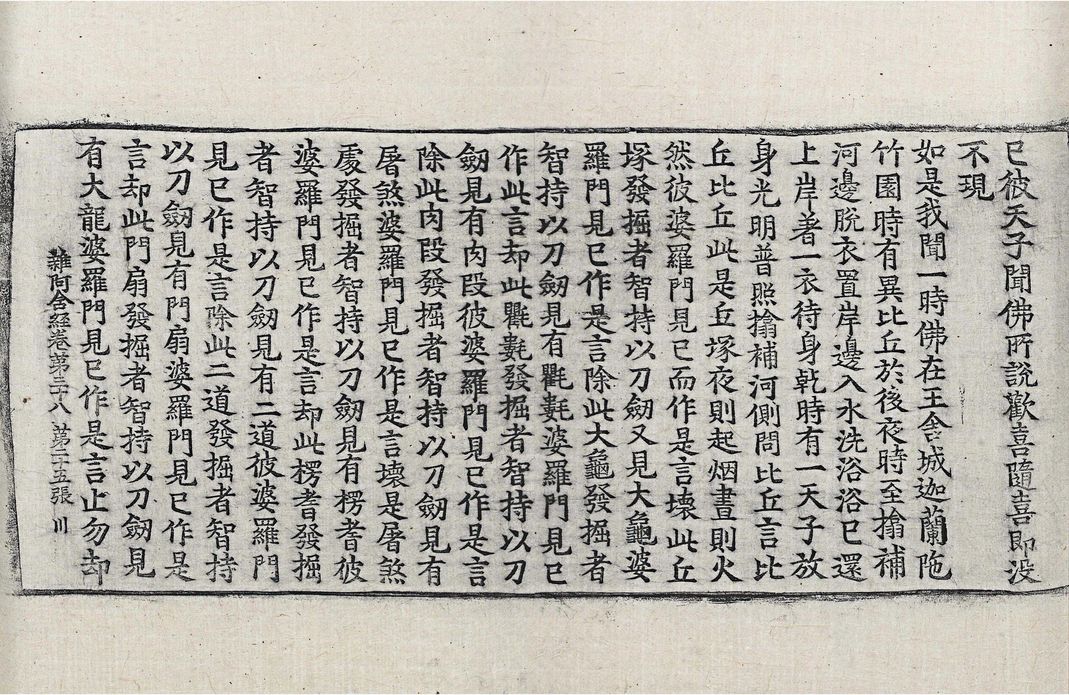 已彼天子聞佛所說歡喜隨喜即没
不現
如是我聞一時佛在王舍城迦蘭陁
竹園時有異比丘於後夜時至搚補
河邊脫衣置岸邊入水洗浴浴已還
上岸著一衣待身乾時有一天子放
身光明普照搚補河側問比丘言比
丘比丘此是丘塚夜則起烟晝則火
然彼婆羅門見已而作是言壞此丘
塚發掘者智持以刀劒又見大龜婆
羅門見已作是言除此大龜發掘者
智持以刀劒見有氍𣯜婆羅門見已
作此言却此氍𣯜發掘者智持以刀
劒見有肉段彼婆羅門見已作是言
除此肉段發掘者智持以刀劒見有
屠煞婆羅門見已作是言壞是屠煞
處發掘者智持以刀劒見有楞耆彼
婆羅門見已作是言却此楞耆發掘
者智持以刀劒見有二道彼婆羅門
見已作是言除此二道發掘者智持
以刀劒見有門扇婆羅門見已作是
言却此門扇發掘者智持以刀劒見
有大龍婆羅門見已作是言止勿却
雜阿含經卷第三十八 第二十五張 川